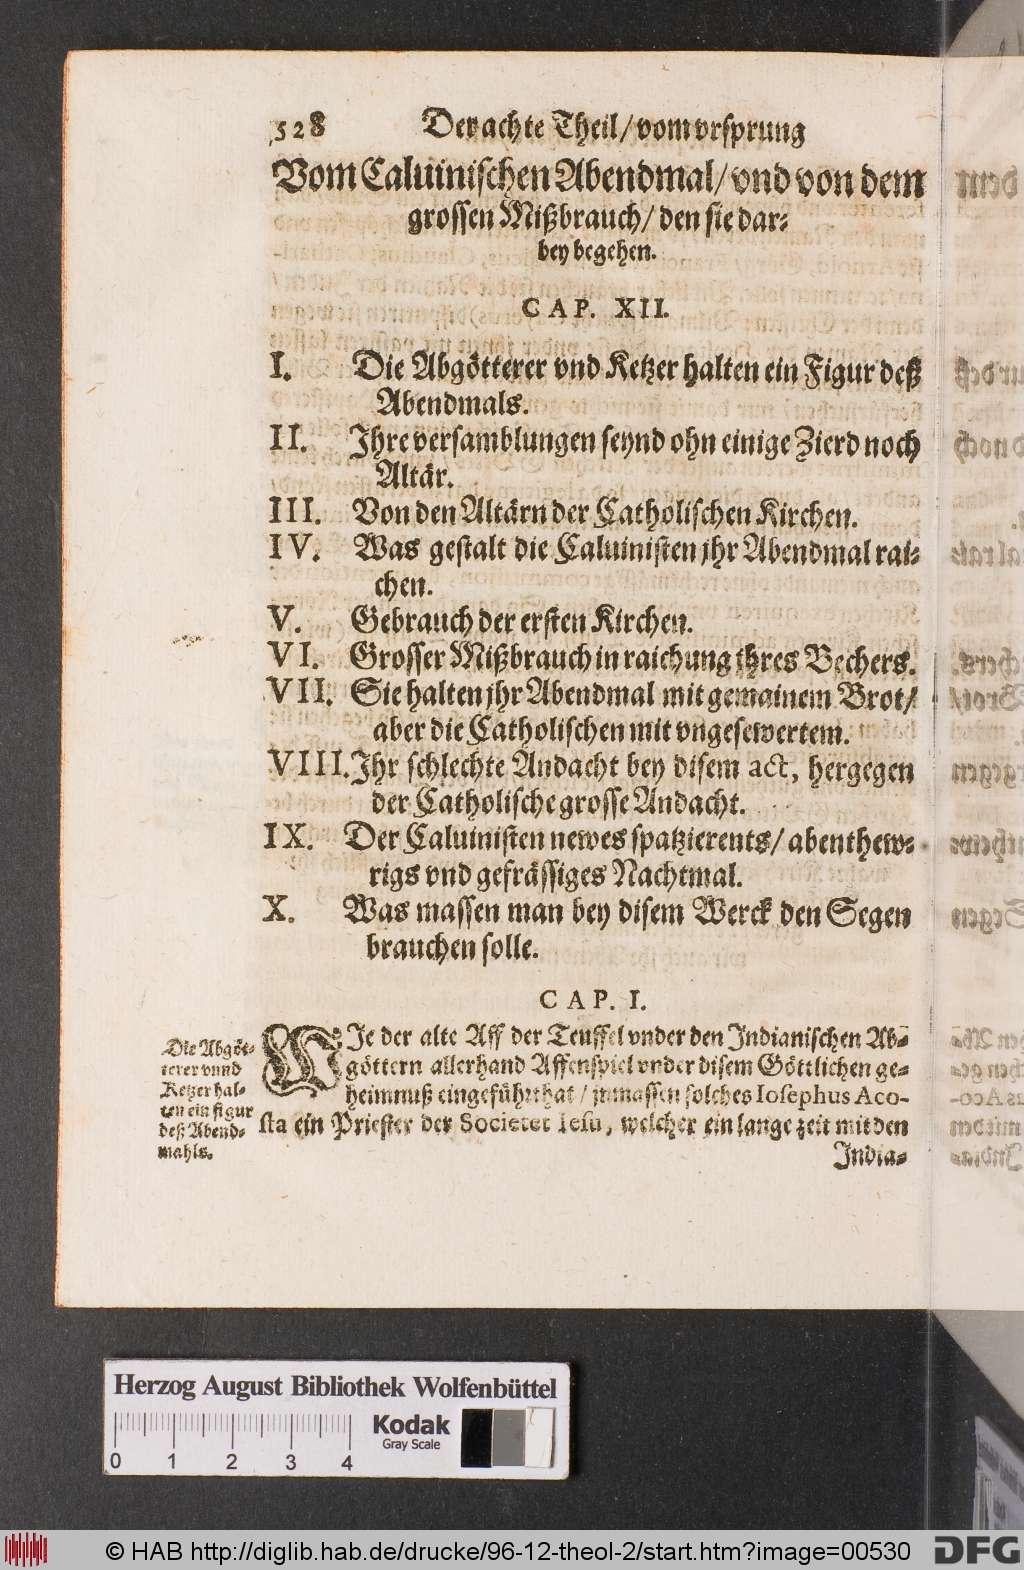 528 Der achte Theil / vom vrsprung
Vom Caluinischen Abendmal / vnd von dem
grossen Mißbrauch / den sie dar-
bey begehen.
CAP. XII.
I. Die Abgötterer vnd Ketzer halten ein Figur deß
Abendmals.
II. Jhre versamblungen seynd ohn einige Zierd noch
Altär.
III. Von den Altärn der Catholischen Kirchen.
IV. Was gestalt die Caluinisten jhr Abendmal rai-
chen.
V. Gebrauch der ersten Kirchen.
VI. Grosser Mißbrauch in raichung jhres Bechers.
VII. Sie halten jhr Abendmal mit gemainem Brot /
aber die Catholischen mit vngesewertem.
VIII. Jhr schlechte Andacht bey disem act, hergegen
der Catholische grosse Andacht.
IX. Der Caluinisten newes spatzierents / abenthew-
rigs vnd gefrässiges Nachtmal.
X. Was massen man bey disem Werck den Segen
brauchen solle.
CAP. I.
Die Abgöt-
terer vnnd
Ketzer hal-
ten ein figur
deß Abend-
mahls.
WJe der alte Aff der Teuffel vnder den Jndianischen Ab-
göttern allerhand Affenspiel vnder disem Göttlichen ge-
heimnuß eingeführt hat / inmassen solches Iosephus Aco-
sta ein Priester der Societet Iesu, welcher ein lange zeit mit den
Jndia-
Herzog August Bibliothek Wolfenbüttel
Kodak
Gray Scale
0 1 2 3 4
© HAB http://diglib.hab.de/drucke/96-12-theol-2/start.htm?image=00530
DFG